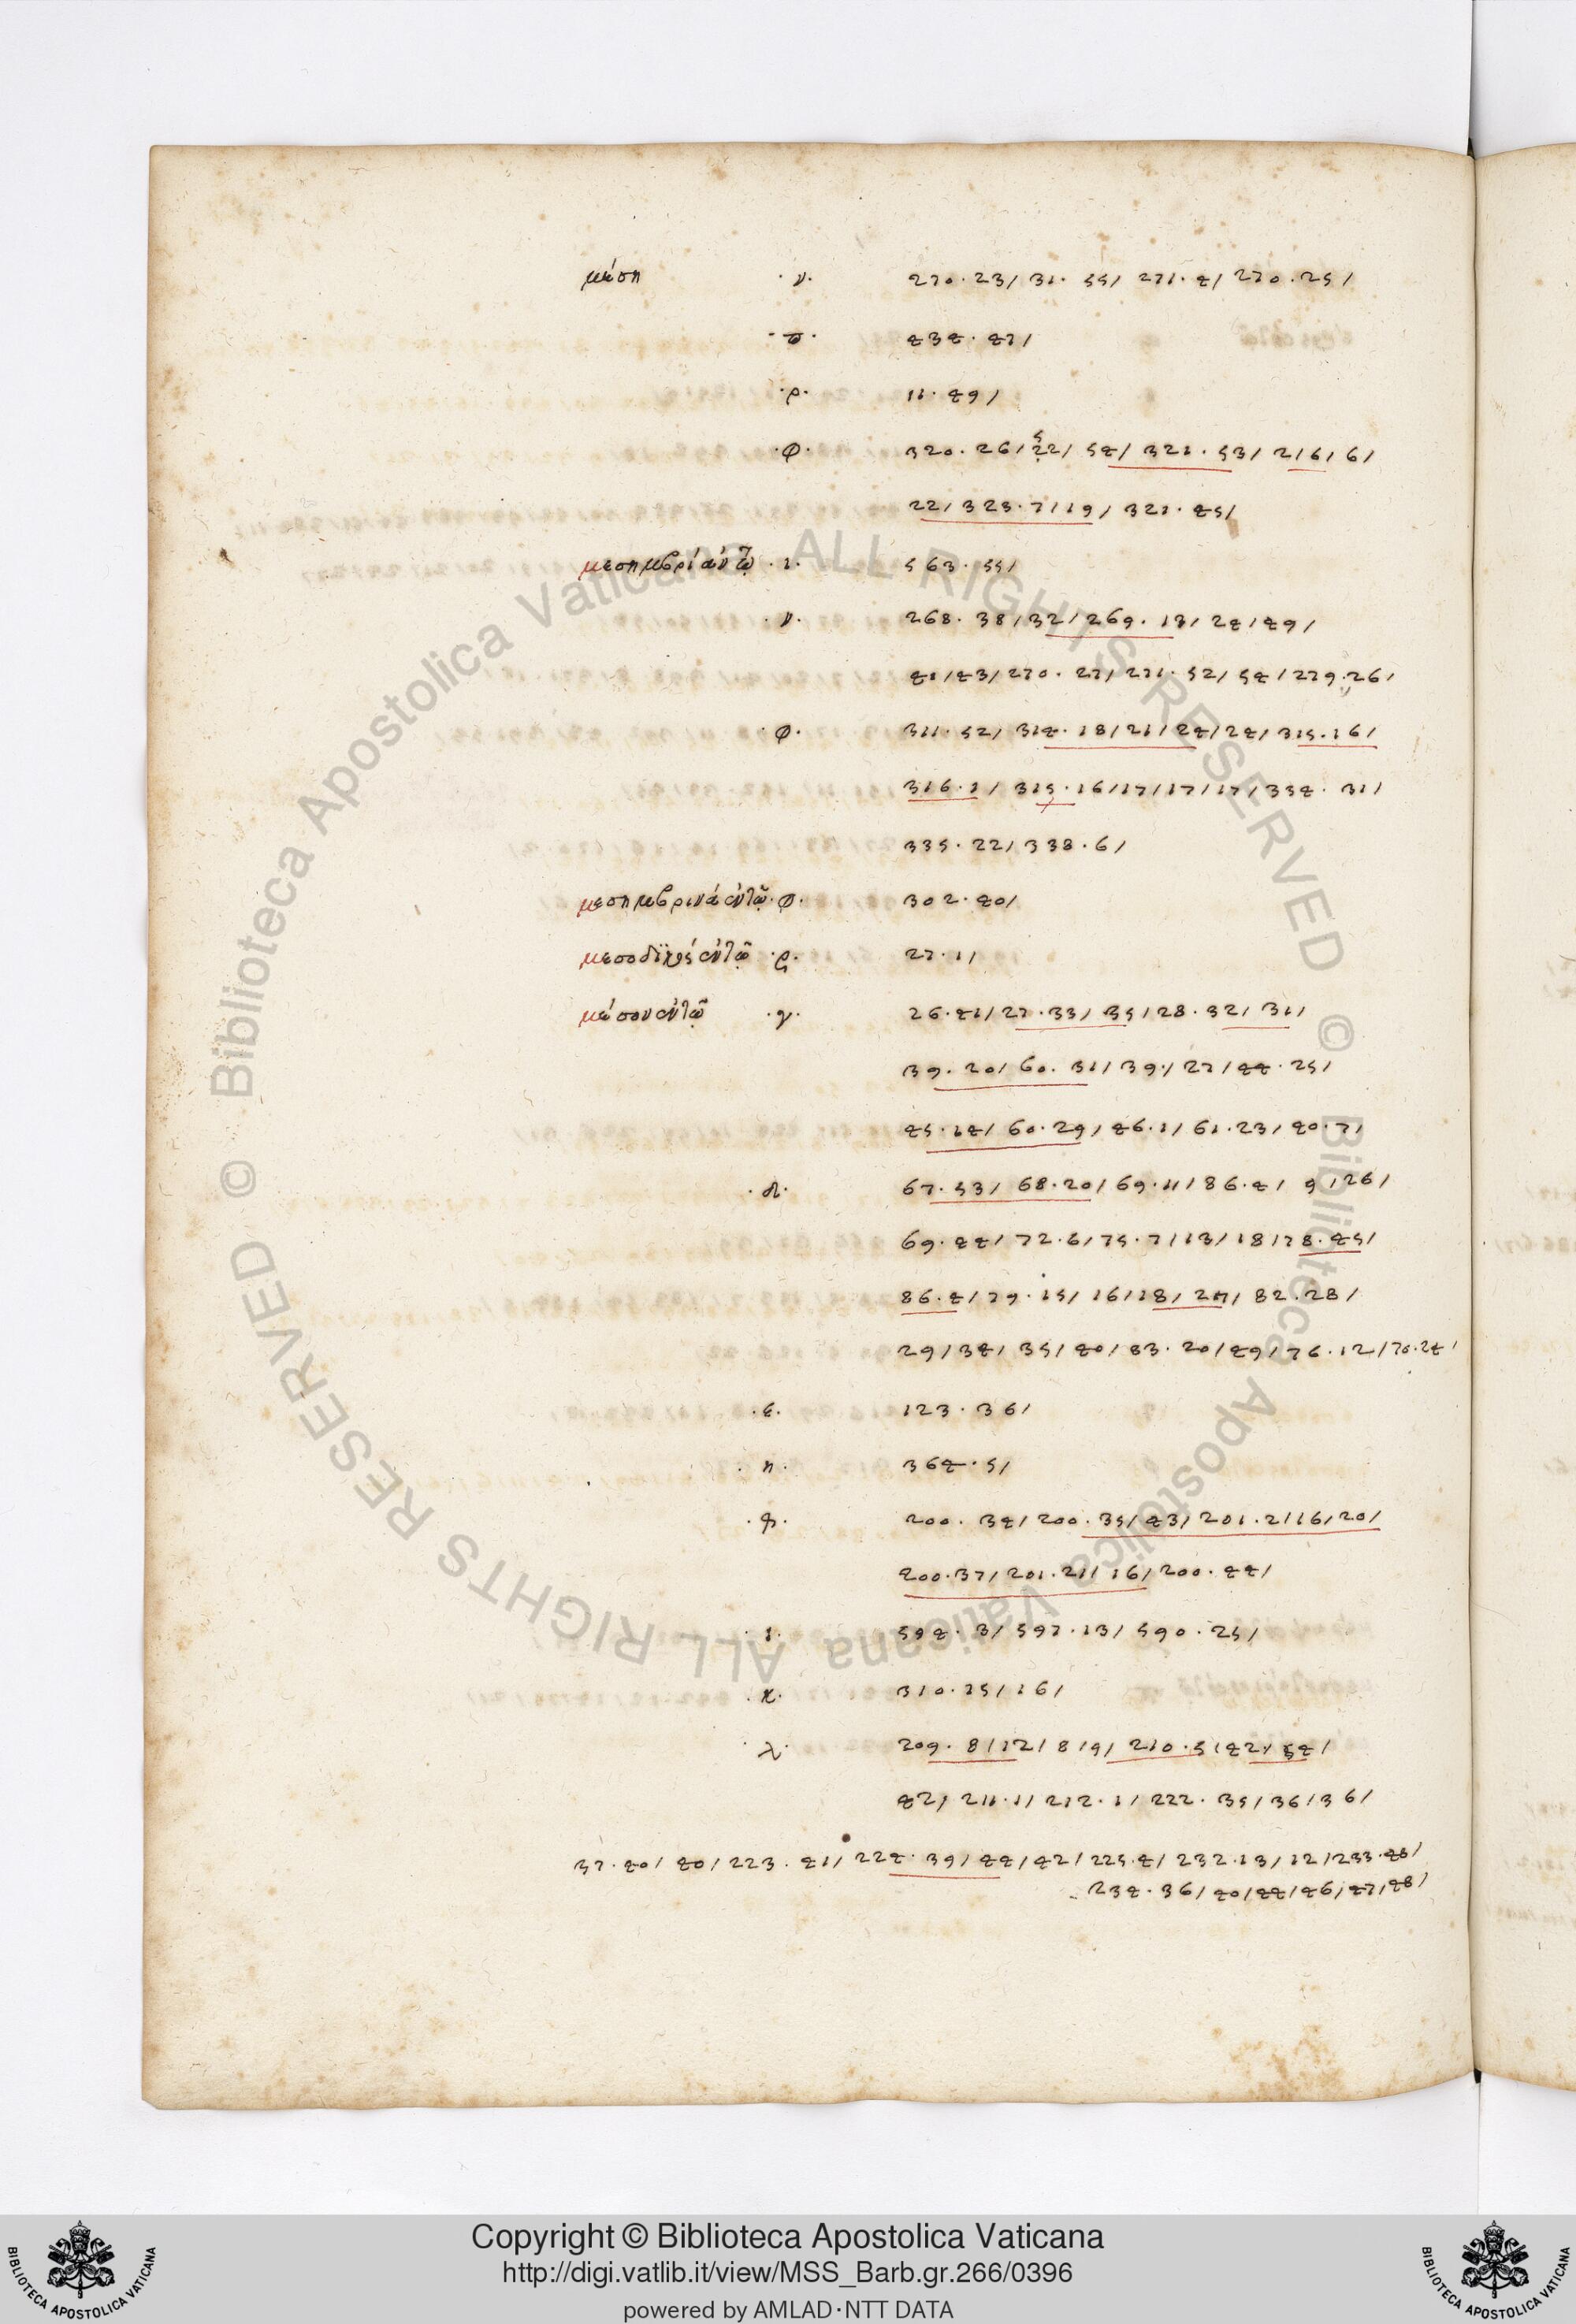 μέση ·ν· 270·23/ 31· 55/ 271·4/ 270·25/
·π· 434·47/
·ρ· 11·49/
·φ· 320·26/ 22/ 54/ 321·53/ 2/6/6/
22/ 323·7/19/ 321·45/
μεσημβρία ἐν τῷ ·ι· 563·55/
·ν· 268·38/32/269·13/24/49/
41/43/270·27/271·52/54/279·26/
·φ· 311·52/ 314·18/21/24/24/315·16/
316·1/ 315·16/17/17/17/334·31/
335·22/338·6/
μεσημβρινὰ ἐν τῷ ·φ· 302·40/
ἐν τῷ ·ρ· 27·1/
μέσον ἐν τῷ ·γ· 26·41/27·33/35/28·32/31/
39·20/60·31/39·/27/44·25/
45·14/60·29/46·1/61·23/40·7/
·δ· 67·53/68·20/69·11/86·4/9/26/
69·44/72·6/75·7/13/18/78·45/
86·4/79·15/16/18/27/82·28/
29/34/35/40/83·20/49/76·12/70·24/
·ε· 123·36/
·η· 364·5/
·θ· 200·34/200·35/43/201·2/16/20/
200·37/201·21/16/200·44/
·ι· 594·3/597·13/590·25/
·κ· 310·15/16/
·λ· 209·8/12/8/9/210·5/42/54/
42/211·1/212·1/222·35/36/36/
37·40/40/223·41/224·39/44/42/225·4/232·13/12/233·48/
234·36/40/44/46/47/48/
Copyright © Biblioteca Apostolica Vaticana
http://digi.vatlib.it/view/MSS_Barb.gr.266/0396
powered by AMLAD·NTT DATA